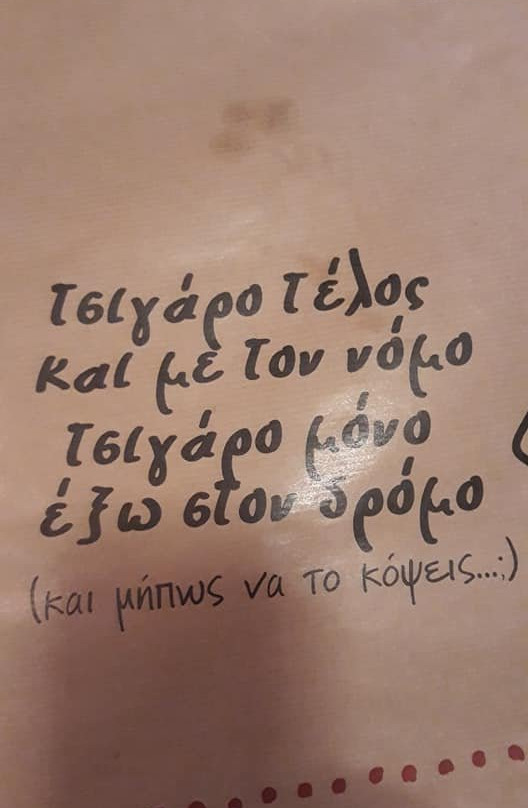 τσιγάρο τέλος
και με τον νόμο
τσιγάρο μόνο
έξω στον δρόμο
(και μήπως να το κόψεις...;)